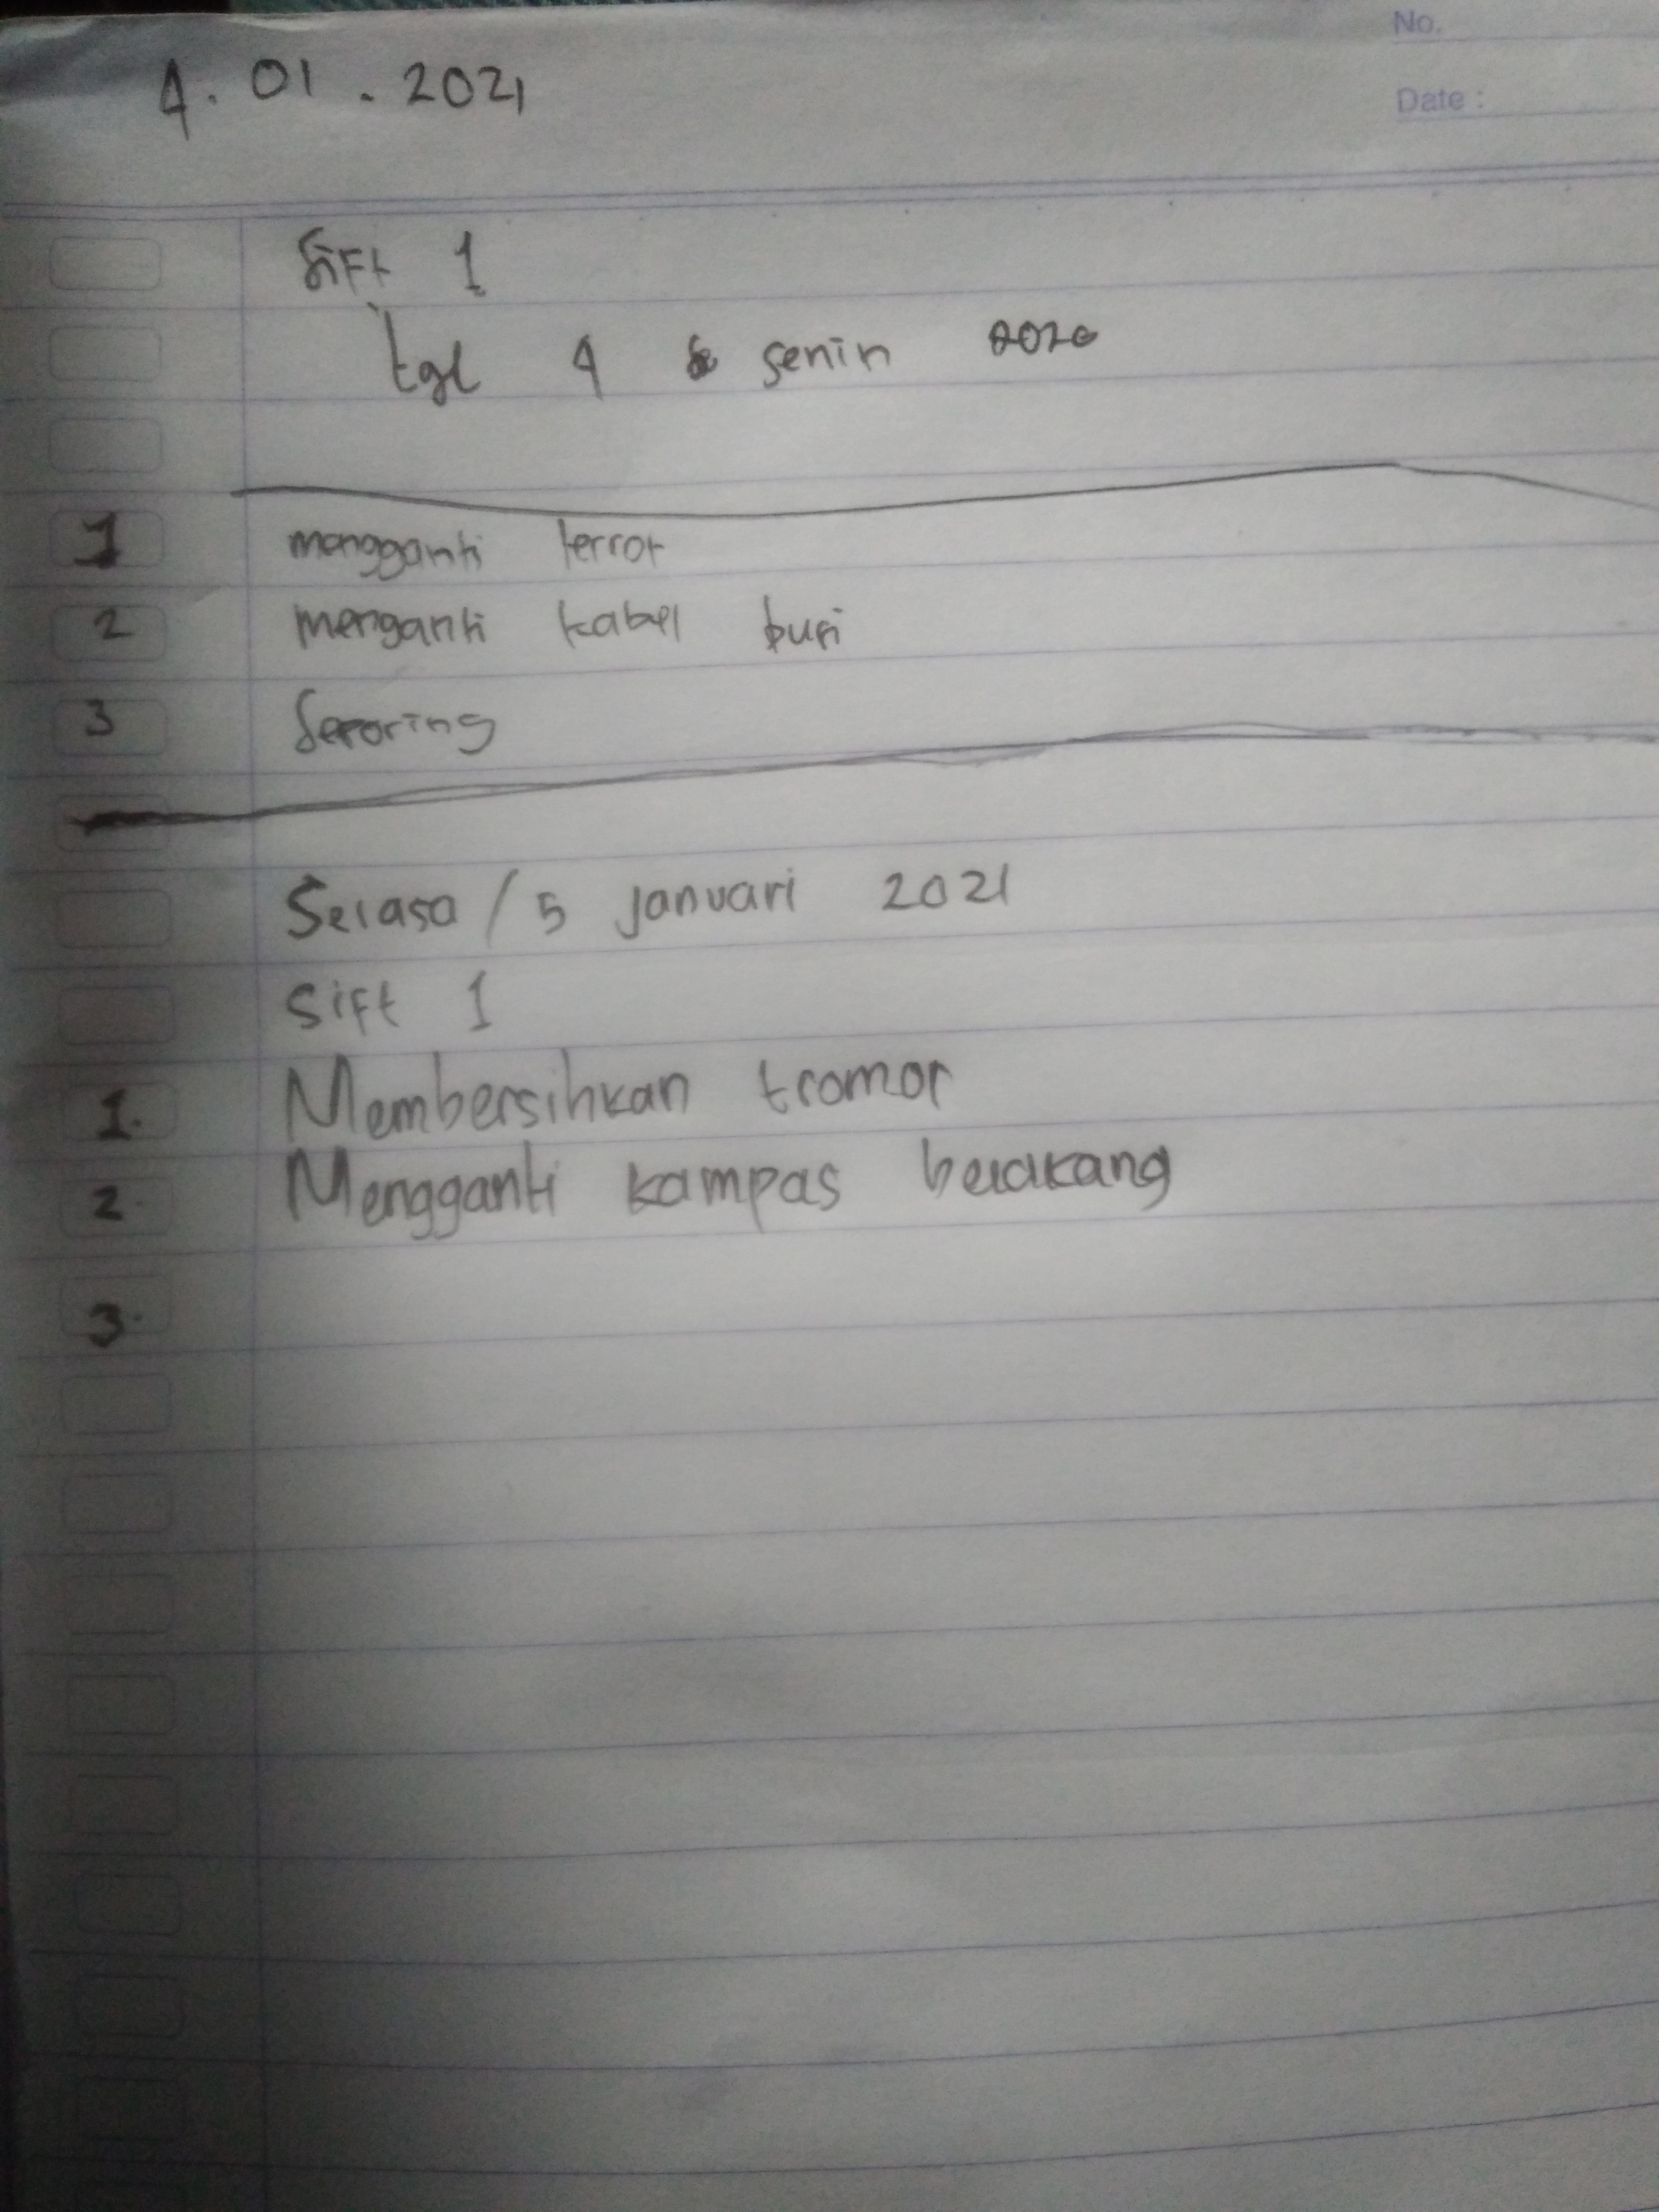 No.
Date :
4. 01 . 2021
Sift 1
tgl 4 senin 2020
1 mengganti terror
2 menganti kabel busi
3 Seporing
Selasa / 5 januari 2021
Sift 1
1. Membersihkan tromor
2. Mengganti kampas belakang
3.